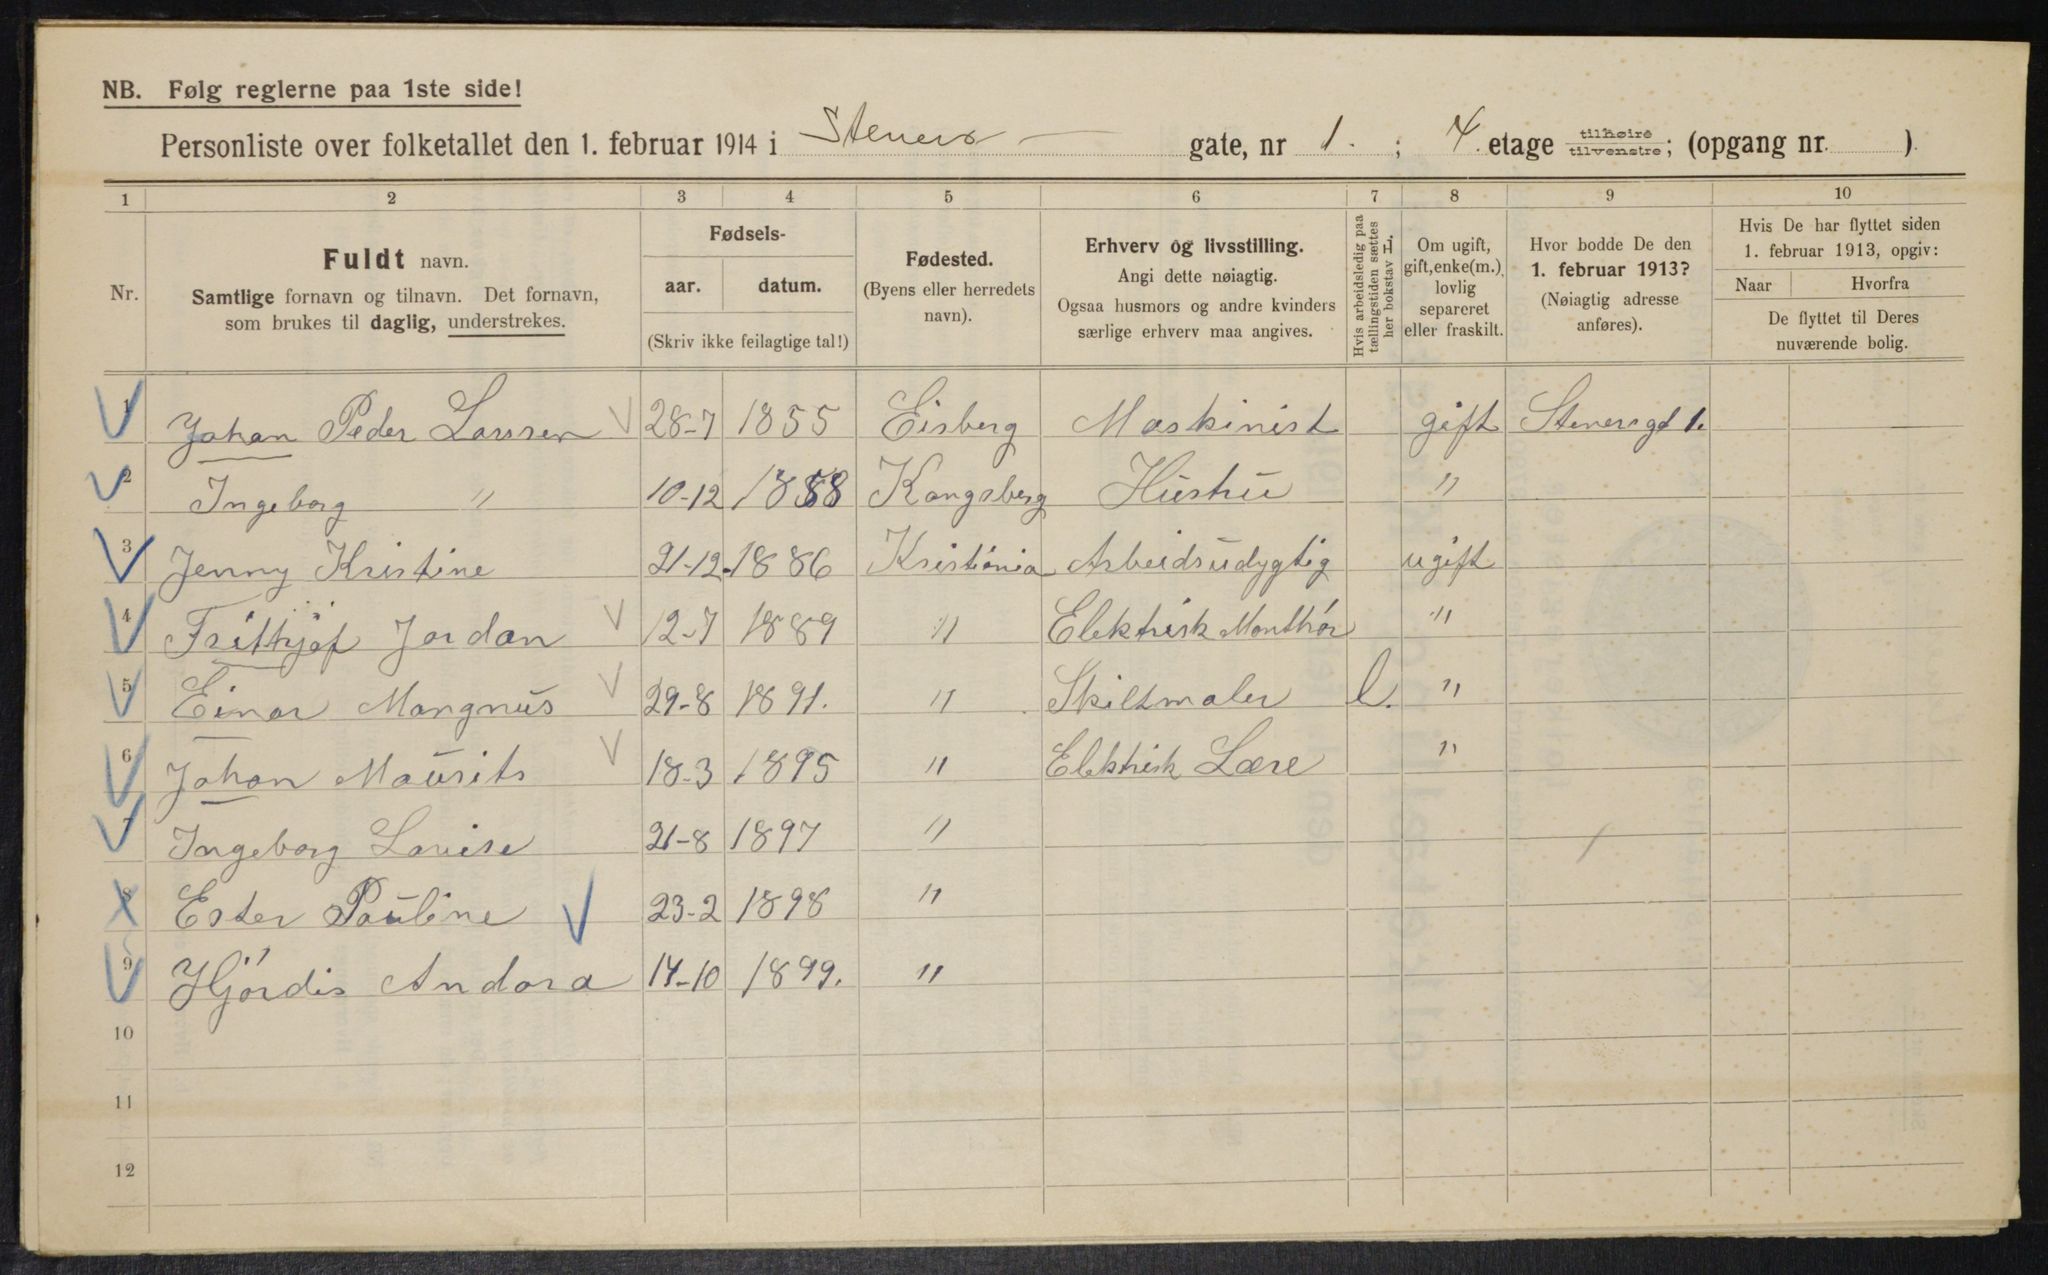 NB. Følg reglerne paa 1ste side!
Personliste over folketallet den 1. februar 1914 i Steners gate, nr 1. ; 4. etage tilhøire tilvenstre; (opgang nr. )
1 2 3 4 5 6 7 8 9 10
Nr.
Fuldt navn.
Samtlige fornavn og tilnavn. Det fornavn,
som brukes til daglig, understrekes.
Fødsels-
aar. datum.
(Skriv ikke feilagtige tal!)
Fødested.
(Byens eller herredets
navn).
Erhverv og livsstilling.
Angi dette nøiagtig.
Ogsaa husmors og andre kvinders
særlige erhverv maa angives.
Hvis arbeidsledig paa
tællingstiden sættes
her bokstav L.
Om ugift,
gift, enke(m.),
lovlig
separeret
eller fraskilt.
Hvor bodde De den
1. februar 1913?
(Nøiagtig adresse
anføres).
Hvis De har flyttet siden
1. februar 1913, opgiv:
Naar Hvorfra
De flyttet til Deres
nuværende bolig.
1 Johan Peder Larssen 28-7 1855 Eisberg Maskinist gift Stenersgt 1.
2 Ingeborg " 10-12 1858 Kongsberg Hustru "
3 Jenny Kristine 21-12 1886 Kristiania Arbeidsudygtig ugift
4 Frithjof Jordan 12-7 1889 " Elektrisk Monthör "
5 Einar Mangnus 29-8 1891. " Skiltmaler l. "
6 Johan Maurits 18-3 1895 " Elektrisk Lære "
7 Ingeborg Lovise 21-8 1897 "
8 Ester Pauline 23-2 1898 "
9 Hjördis Andora 14-10 1899. "
10
11
12